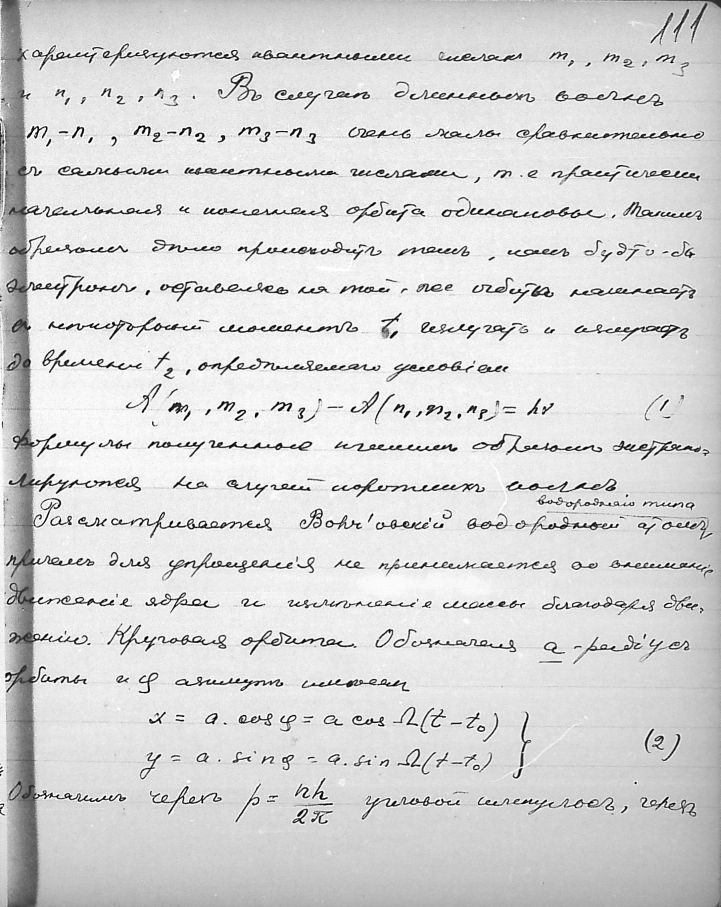 111
характеризуются квантовыми числами m₁, m₂, m₃
и n₁, n₂, n₃. Въ случаѣ длинныхъ волнъ
m₁-n₁, m₂-n₂, m₃-n₃ очень малы сравнительно
съ самыми квантовыми числами, т.е практически
начальная и конечная орбита одинаковы. Такимъ
образомъ дѣло происходитъ такъ, какъ будто-бы
электронъ, оставаясь на той-же орбитѣ начинаетъ
въ некоторый моментъ t₁ излучать и излучаетъ
до времени t₂, опредѣляемаго условіем
A(m₁, m₂, m₃) - A(n₁, n₂, n₃) = hν (1)
Формулы полученные образомъ экстрапо-
лируются на случай короткихъ волнъ
водороднаго типа
Разсматривается Bohr'овскій водородный атомъ,
причемъ для упрощенія не принимается во вниманіе
движеніе ядра и измѣненіе массы благодаря дви-
женію. Круговая орбита. Обозначая a - радіусъ
орбиты и φ азимутъ имѣем
x = a. cos φ = a cos Ω(t-t₀)
y = a. sin φ = a. sin Ω(t-t₀) } (2)
Обозначимъ черезъ p = nh/2π угловой импульсъ, черезъ